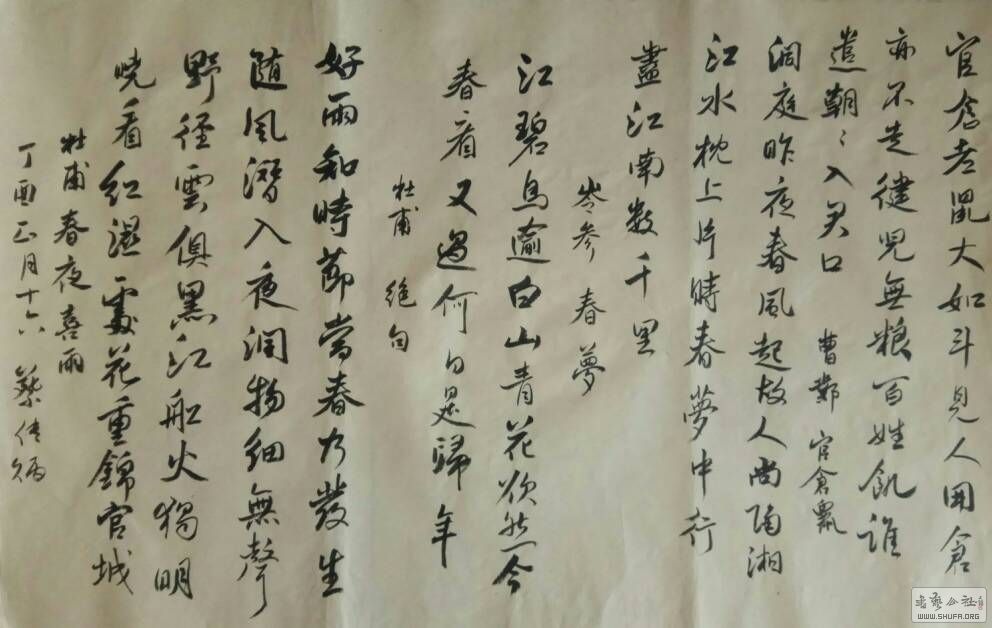 官倉老鼠大如斗見人開倉
亦不走健児無粮百姓飢誰
遣朝〻入君口
曹鄴 官倉鼠
洞庭昨夜春風起故人尚隔湘
江水枕上片時春夢中行
盡江南数千里
岑参 春夢
江碧鳥逾白山青花欲然今
春看又過何日是歸年
杜甫 绝句
好雨知時節當春乃發生
随風潛入夜润物细無聲
野径雲俱黑江船火獨明
晓看红濕處花重錦官城
杜甫 春夜喜雨
丁酉正月十六 蔡传炳
書藝公社
WWW.SHUFA.ORG